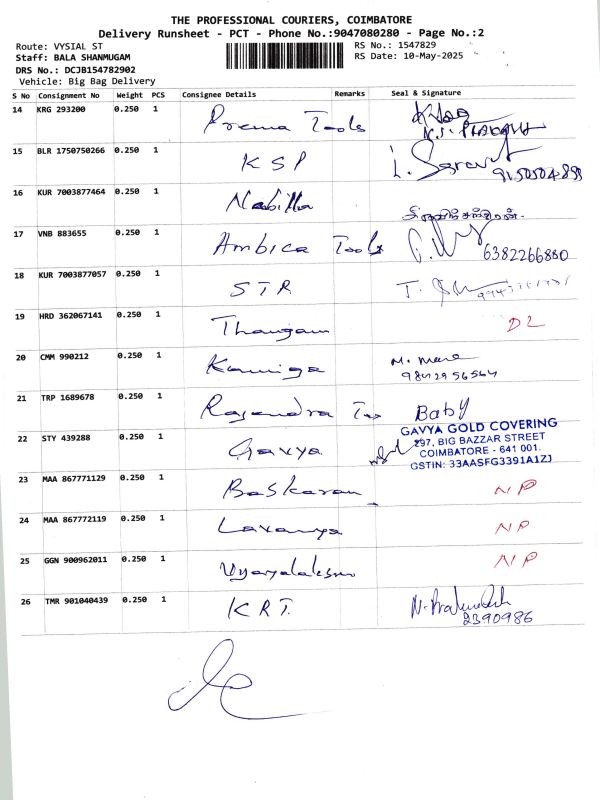 THE PROFESSIONAL COURIERS, COIMBATORE
Delivery Runsheet - PCT - Phone No.:9047080280 - Page No.:2
Route: VYSIAL ST
RS No.: 1547829
Staff: BALA SHANMUGAM
RS Date: 10-May-2025
DRS No.: DCJB154782902
Vehicle: Big Bag Delivery
S No Consignment No Weight PCS Consignee Details Remarks Seal & Signature
14 KRG 293200 0.250 1 Prema Tools
15 BLR 1750750266 0.250 1 KSP
16 KUR 7003877464 0.250 1 Nabilla
17 VNB 883655 0.250 1 Ambica Tools 6382266880
18 KUR 7003877057 0.250 1 STR
19 HRD 362067141 0.250 1 Thangam D2
20 CMM 990212 0.250 1 Kaniga
21 TRP 1689678 0.250 1 Rajendra Baby
22 STY 439288 0.250 1 Gavya
GAVYA GOLD COVERING
297, BIG BAZZAR STREET
COIMBATORE - 641 001.
GSTIN: 33AASFG3391A1ZJ
23 MAA 867771129 0.250 1 Baskaran NP
24 MAA 867772119 0.250 1 Lavanya NP
25 GGN 900962011 0.250 1 NP
26 TMR 901040439 0.250 1 KRT.
2390986